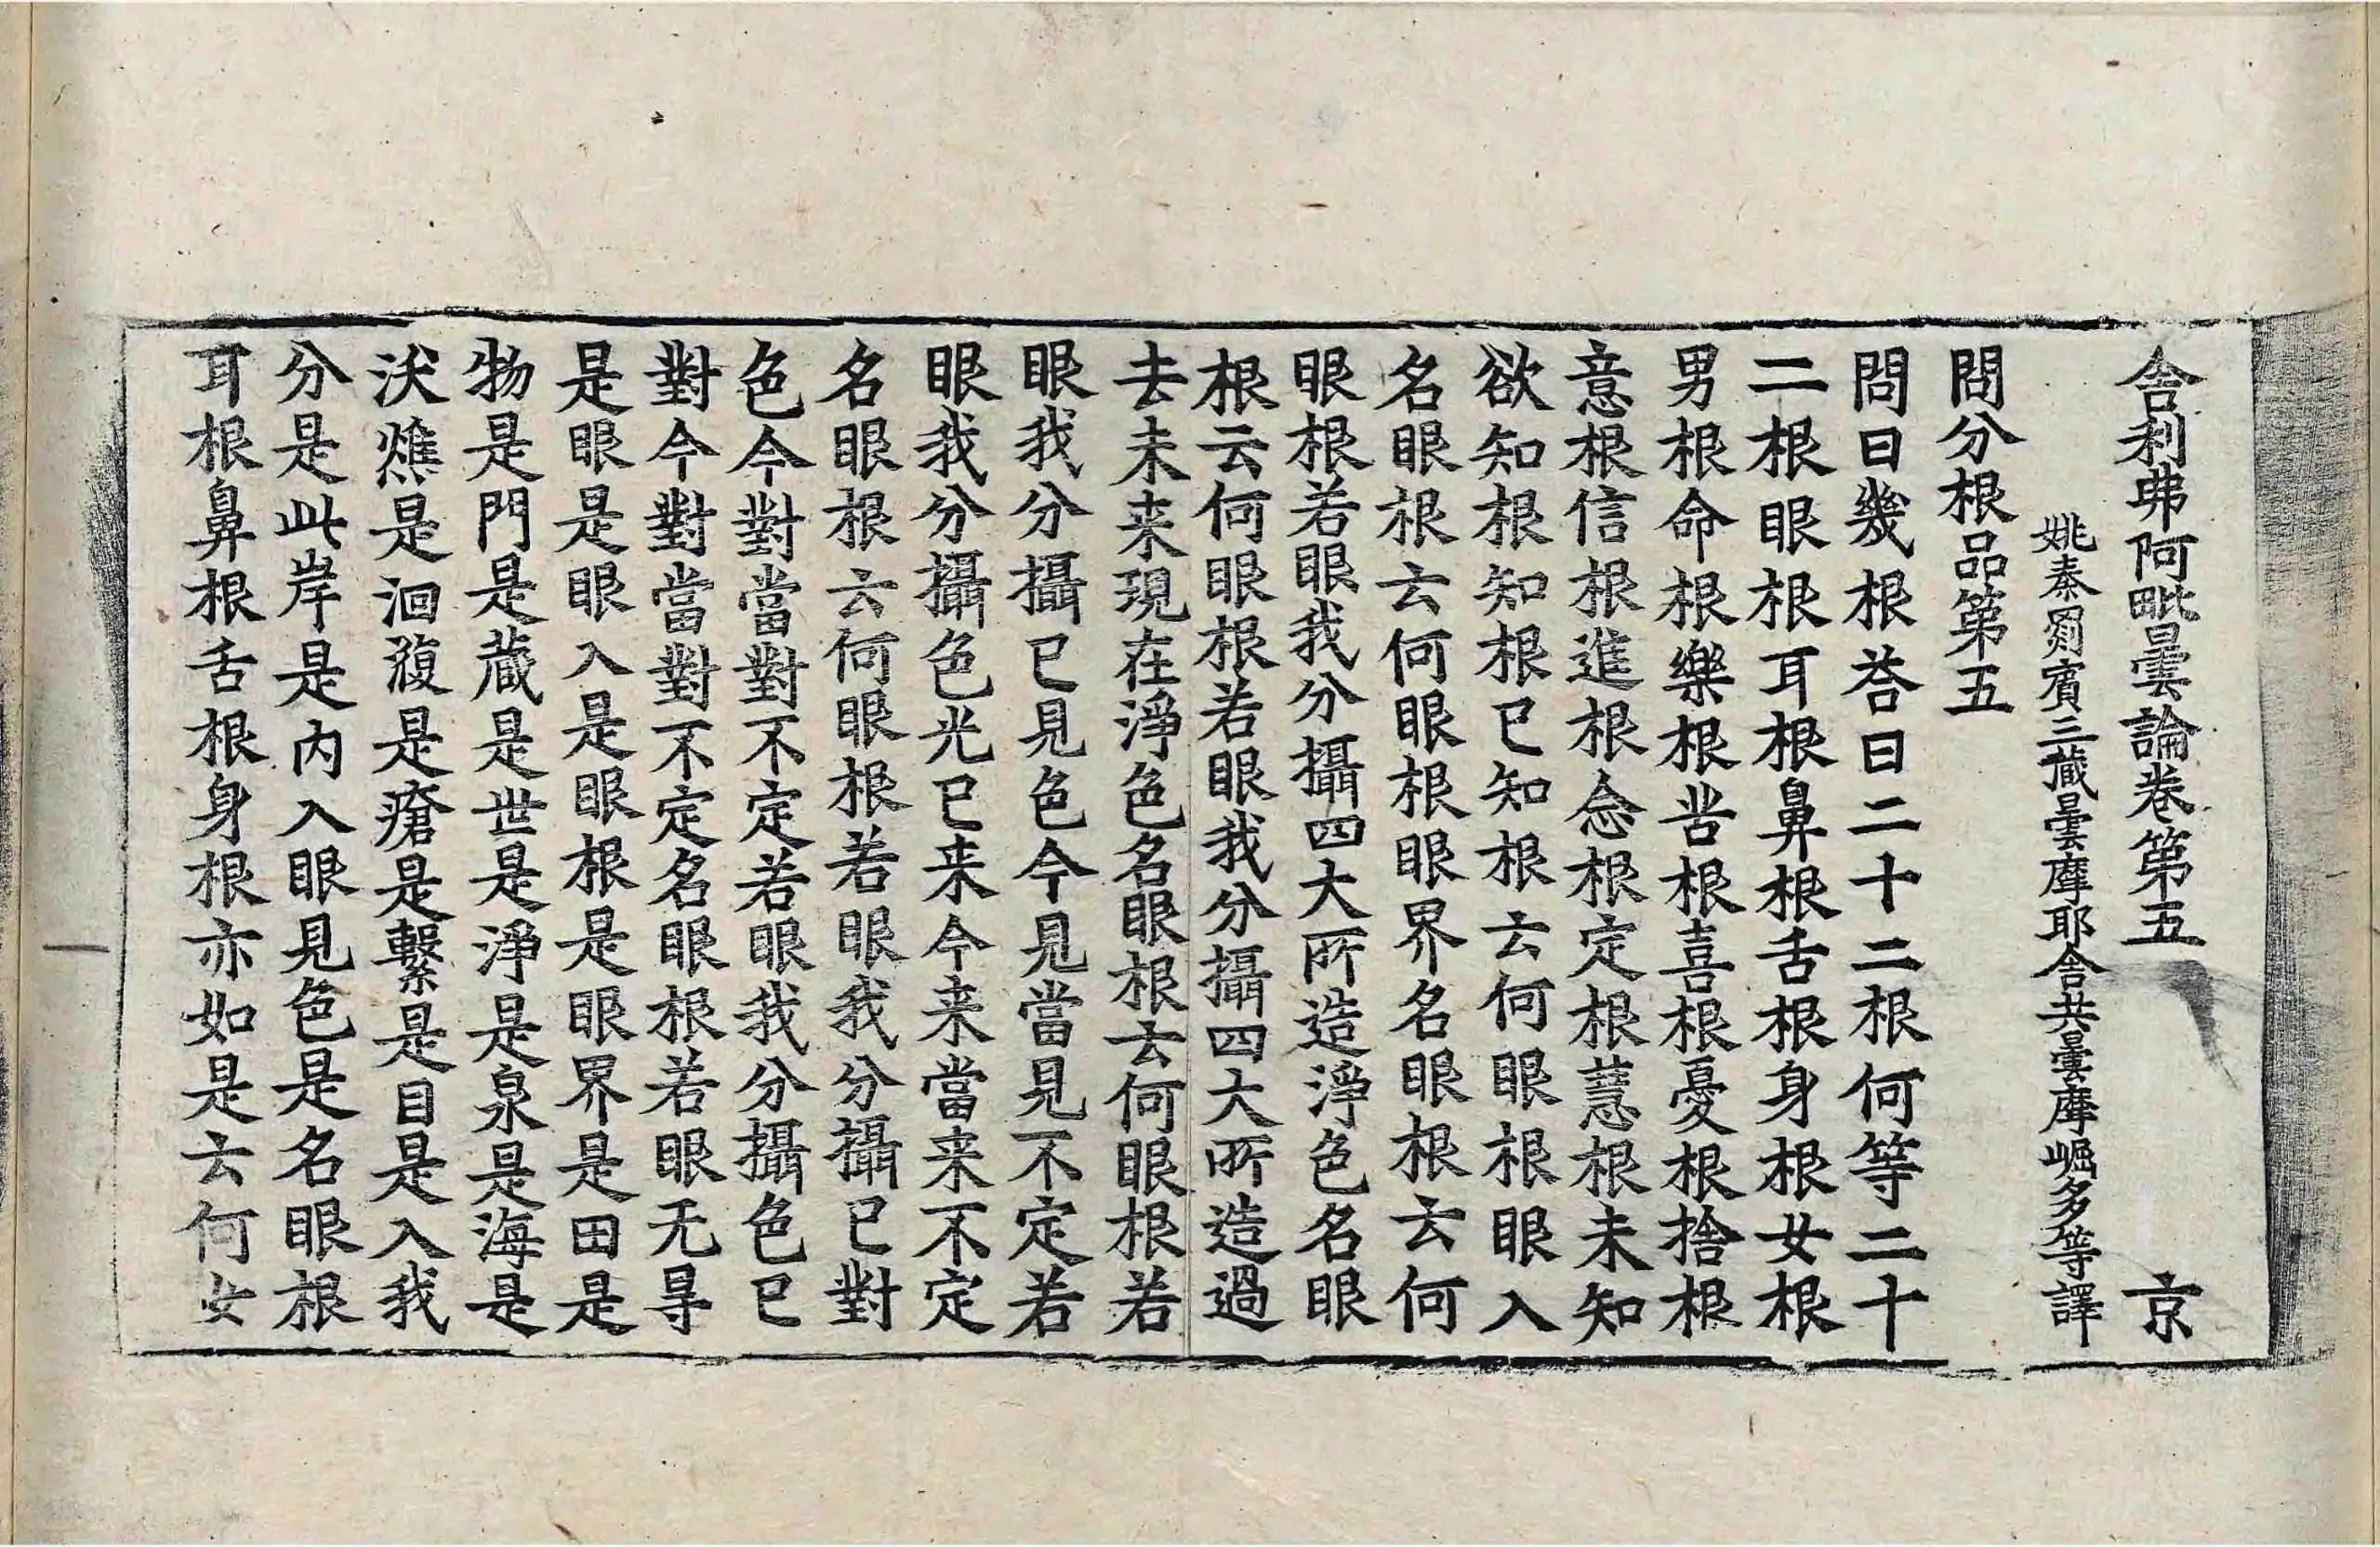 舎利弗阿毗曇論卷第五 京
姚秦罽賓三藏曇摩耶舎共曇摩崛多等譯
問分根品第五
問曰幾根荅曰二十二根何等二十
二根眼根耳根鼻根舌根身根女根
男根命根樂根苦根喜根憂根捨根
意根信根進根念根定根慧根未知
欲知根知根已知根云何眼根眼入
名眼根云何眼根眼界名眼根云何
眼根若眼我分攝四大所造淨色名眼
根云何眼根若眼我分攝四大所造過
去未来現在淨色名眼根云何眼根若
眼我分攝已見色今見當見不定若
眼我分攝色光已来今来當来不定
名眼根云何眼根若眼我分攝已對
色今對當對不定若眼我分攝色已
對今對當對不定名眼根若眼无㝵
是眼是眼入是眼根是眼界是田是
物是門是蔵是世是淨是泉是海是
沃燋是洄澓是瘡是繫是目是入我
分是此岸是内入眼見色是名眼根
耳根鼻根舌根身根亦如是云何女